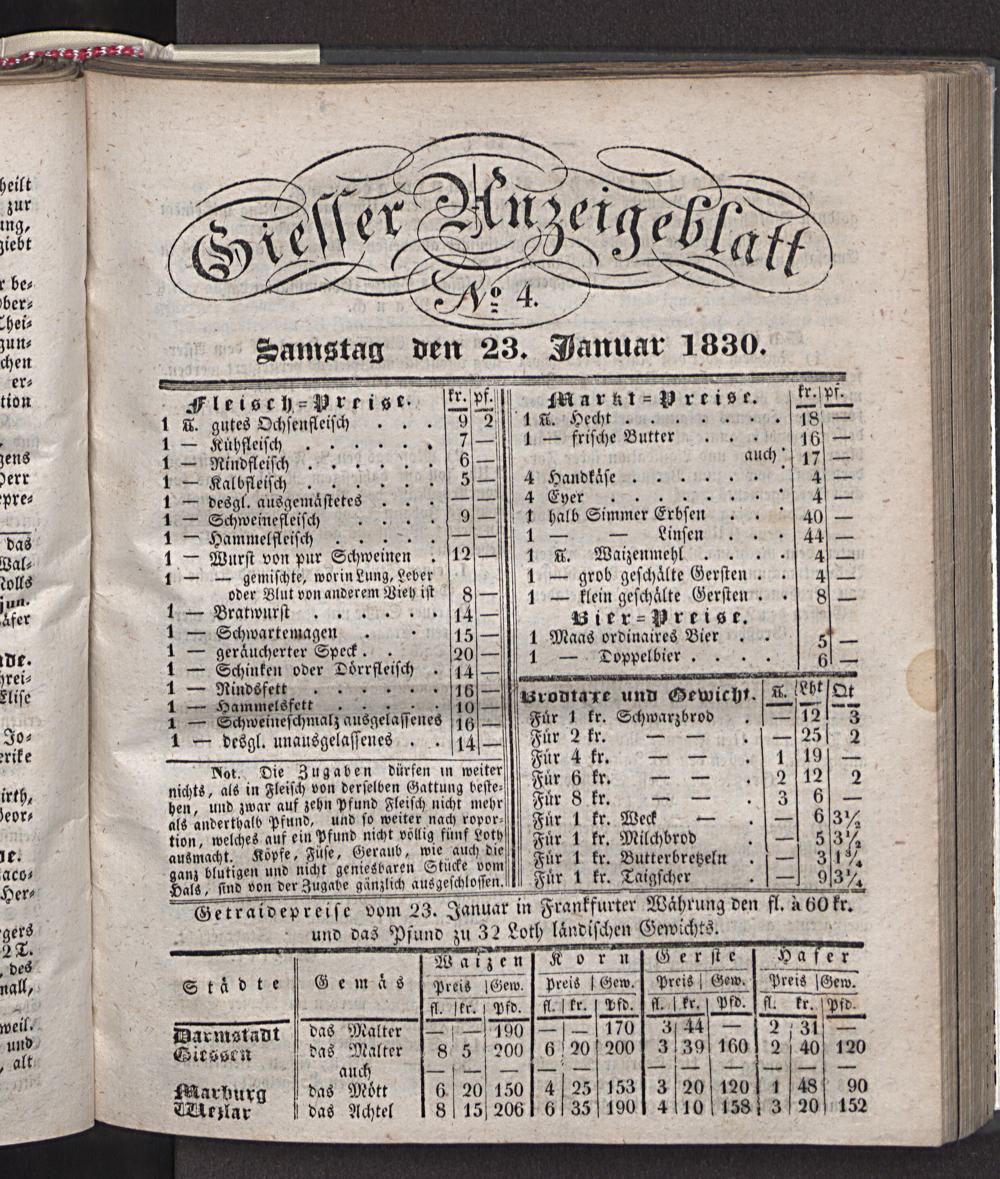 heilt
zur
ung,
giebt
r be⸗
ober⸗
Thei⸗
gun⸗
chen
er⸗
tion
gens
Herr
epre⸗
das
Wal⸗
Nolls
jun.
äfer
nde.
hrei⸗
Elise
Jo⸗
erike
irth,
Geor⸗
de.
aco⸗
Her⸗
gers
2 T.
, des
mall,
weil.
und
, alt
Giesser Anzeigeblatt
No 4.
Samstag den 23. Januar 1830.
Fleisch⸗Preise. kr. pf.
1 ℔. gutes Ochsenfleisch . . . 9 2
1 — Kühfleisch . . . . . 7 —
1 — Rindfleisch . . . . . . 6 —
1 — Kalbfleisch . . . . . . 5 —
1 — desgl. ausgemästetes . . . — —
1 — Schweinefleisch . . . . 9 —
1 — Hammelfleisch . . . . . — —
1 — Wurst von pur Schweinen . 12 —
1 — — gemischte, worin Lung, Leber
oder Blut von anderem Vieh ist 8 —
1 — Bratwurst . . . . . 14 —
1 — Schwartemagen . . . 15 —
1 — geräucherter Speck . . . . 20 —
1 — Schinken oder Dörrfleisch . . 14 —
1 — Rindsfett . . . . . . 16 —
1 — Hammelsfett . . . . . 10 —
1 — Schweineschmalz ausgelassenes 16 —
1 — desgl. unausgelassenes . . 14 —
Not. Die Zugaben dürfen in weiter
nichts, als in Fleisch von derselben Gattung beste⸗
hen, und zwar auf zehn Pfund Fleisch nicht mehr
als anderthalb Pfund, und so weiter nach ropor⸗
tion, welches auf ein Pfund nicht völlig fünf Loth
ausmacht. Köpfe, Füse, Geraub, wie auch die
ganz blutigen und nicht geniesbaren Stücke vom
Hals, sind von der Zugabe gänzlich ausgeschlossen.
Markt⸗Preise. kr. pf.
1 ℔. Hecht . . . . . . 18 —
1 — frische Butter . . . . 16 —
auch 17 —
4 Handkäse . . . . . . 4 —
4 Eyer . . . . . . . 4 —
1 halb Simmer Erbsen . . . 40 —
1 — — Linsen . . . 44 —
1 ℔. Waizenmehl . . . . 4 —
1 — grob geschälte Gersten . . 4 —
1 — klein geschälte Gersten . . 8 —
Bier⸗Preise.
1 Maas ordinaires Bier . . 5 —
1 — Doppelbier . . . . 6 —
Brodtaxe und Gewicht. ℔. Lht Qt
Für 1 kr. Schwarzbrod . — 12 3
Für 2 kr. — — . — 25 2
Für 4 kr. — — . 1 19 —
Für 6 kr. — — . 2 12 2
Für 8 kr. — — . 3 6 —
Für 1 kr. Weck — . — 6 3½
Für 1 kr. Milchbrod . — 5 3½
Für 1 kr. Butterbretzeln . — 3 1¾
Für 1 kr. Taigscher . — 9 3¼
Getraidepreise vom 23. Januar in Frankfurter Währung den fl. à 60 kr.
und das Pfund zu 32 Loth ländischen Gewichts.
Städte Gemäs Waizen Korn Gerste Hafer
Preis Gew. Preis Gew. Preis Gew. Preis Gew.
fl. kr. Pfd. fl. kr. Pfd. fl. kr. Pfd. fl. kr. Pfd.
Darmstadt das Malter — — 190 — — 170 3 44 — 2 31 —
Giessen das Malter 8 5 200 6 20 200 3 39 160 2 40 120
auch — — — — — — — — — — — —
Marburg das Mött 6 20 150 4 25 153 3 20 120 1 48 90
Wezlar das Achtel 8 15 206 6 35 190 4 10 158 3 20 152